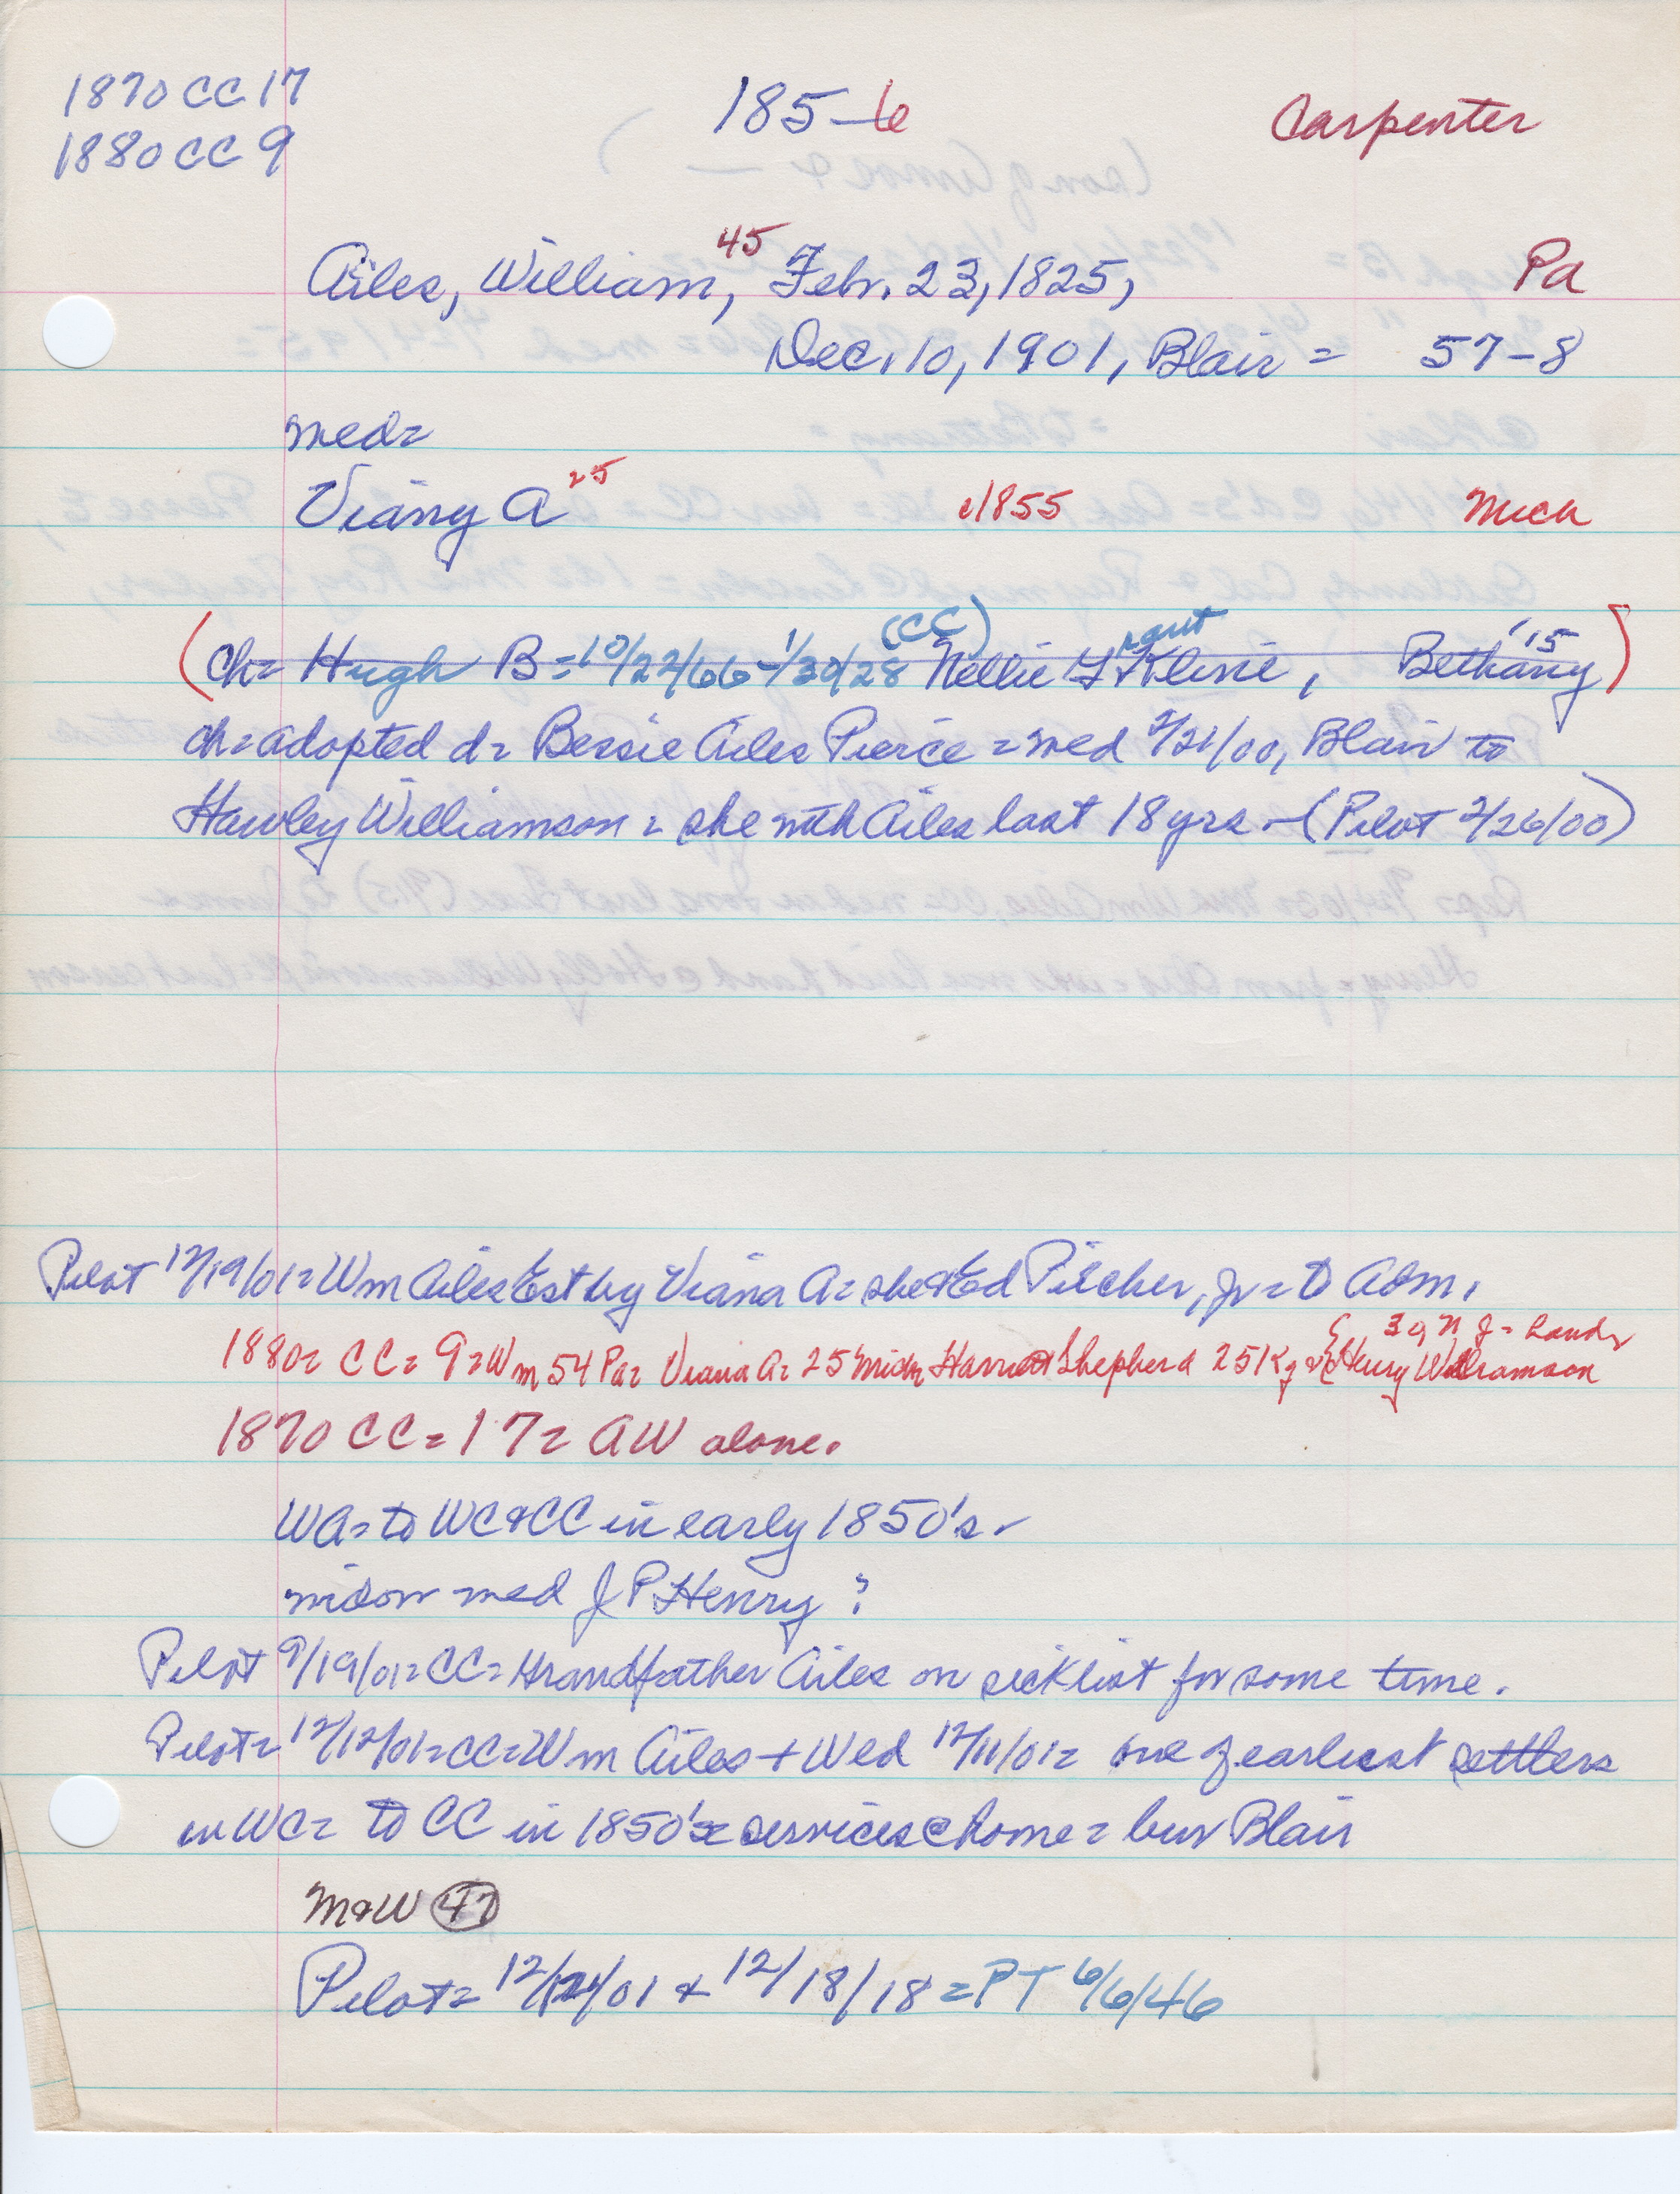 1870 CC 17
1880 CC 9
185-6
Carpenter
Ailes, William, 45 Febr. 23, 1825, Pa
Dec. 10, 1901, Blair = 57-8
med=
Viany A 25 c/1855 Mich
(ch= Hugh B = 10/22/66 - 1/30/28 (CC) Nellie Y Kline, Bethany '15)
ch= adopted d= Bessie Ailes Pierce = med 2/21/00, Blair to
Hawley Williamson = she with Ailes last 18 yrs - (Pilot 2/26/00)
Pilot 12/19/01= Wm Ailes Est by Viana A= she & Ed Pilcher, Jr = to Adm.
1880= CC= 9= Wm 54 Pa= Viana A= 25 Mich Harriet Shepherd 25 Ky & Henry Williamson 39 N J =
1870 CC= 17= AW alone.
WA= to WC & CC in early 1850's.
widow med J P Henry ?
Pilot 9/19/01= CC= Grandfather Ailes on sicklist for some time.
Pilot= 12/12/01= CC= Wm Ailes + Wed 12/11/01= one of earliest settlers
in WC= to CC in 1850's= services @ home = bur Blair
M&W 47
Pilot= 12/ /01 & 12/18/18 = PT 6/6/46